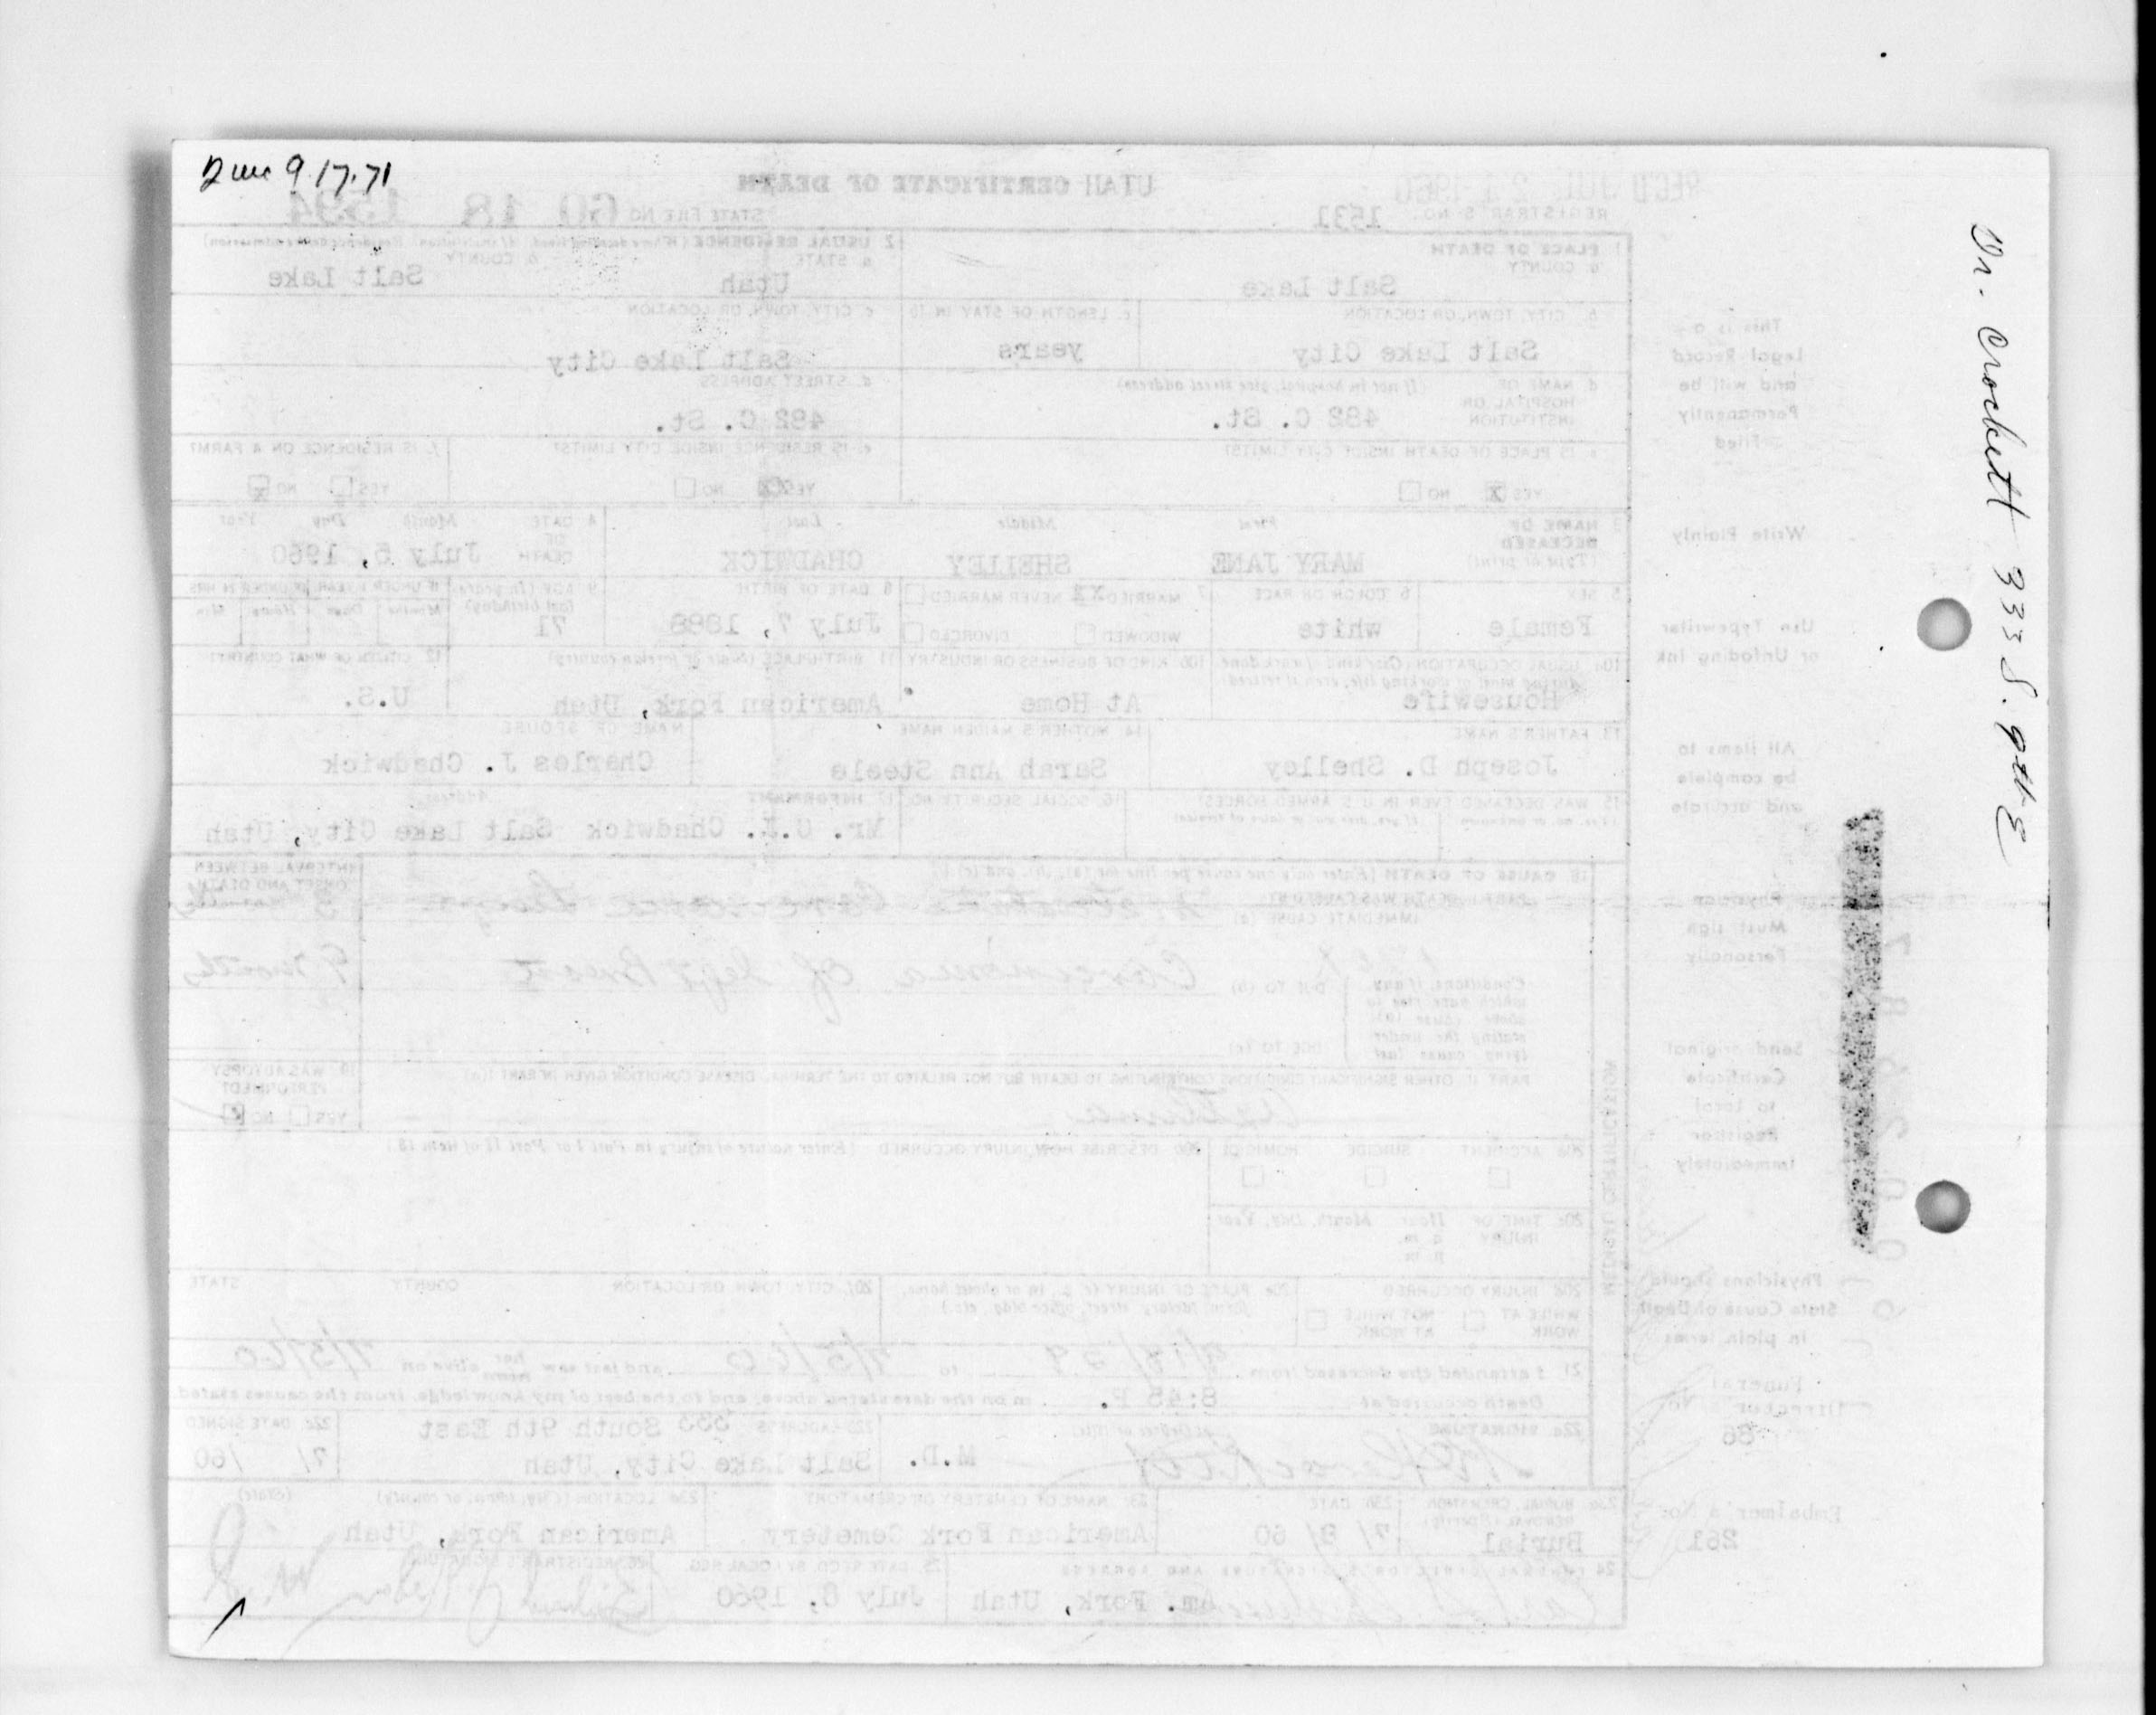 Dme 9.17.71
Dr. Crockett 333 S. 9th E
REC'D JUL 21 1960
UTAH CERTIFICATE OF DEATH
REGISTRAR'S NO. 1531
STATE FILE NO 60 18 1594
1 PLACE OF DEATH
a. COUNTY
Salt Lake
2 USUAL RESIDENCE (Where deceased lived. If institution: Residence before admission)
a. STATE
Utah
b. COUNTY
Salt Lake
b. CITY, TOWN, OR LOCATION
Salt Lake City
c. LENGTH OF STAY IN 1b
years
c. CITY, TOWN, OR LOCATION
Salt Lake City
d. NAME OF HOSPITAL OR INSTITUTION
(If not in hospital, give street address)
482 C. St.
d. STREET ADDRESS
482 C. St.
e. IS PLACE OF DEATH INSIDE CITY LIMITS?
YES X NO
e. IS RESIDENCE INSIDE CITY LIMITS?
YES X NO
f. IS RESIDENCE ON A FARM?
YES NO X
3 NAME OF DECEASED
(Type or print)
First Middle Last
MARY JANE SHELLEY CHADWICK
4 DATE OF DEATH
Month Day Year
July 5, 1960
5. SEX
Female
6 COLOR OR RACE
white
7 MARRIED XX NEVER MARRIED
WIDOWED DIVORCED
8 DATE OF BIRTH
July 7, 1888
9 AGE (In years last birthday)
71
IF UNDER 1 YEAR IF UNDER 24 HRS
Months Days Hours Min
10a USUAL OCCUPATION (Give kind of work done during most of working life, even if retired)
Housewife
10b KIND OF BUSINESS OR INDUSTRY
At Home
11 BIRTHPLACE (State or foreign country)
American Fork, Utah
12 CITIZEN OF WHAT COUNTRY?
U.S.
13. FATHER'S NAME
Joseph D. Shelley
14. MOTHER'S MAIDEN NAME
Sarah Ann Steele
NAME OF SPOUSE
Charles J. Chadwick
15 WAS DECEASED EVER IN U.S. ARMED FORCES?
16. SOCIAL SECURITY NO.
17 INFORMANT Address
Mr. C.J. Chadwick Salt Lake City, Utah
18. CAUSE OF DEATH (Enter only one cause per line for (a), (b), and (c))
PART I. DEATH WAS CAUSED BY:
IMMEDIATE CAUSE (a)
INTERVAL BETWEEN ONSET AND DEATH
Conditions, if any which gave rise to above cause (a) stating the under lying cause last
DUE TO (b) Carcinoma of left Breast
9 months
DUE TO (c)
PART II. OTHER SIGNIFICANT CONDITIONS CONTRIBUTING TO DEATH BUT NOT RELATED TO THE TERMINAL DISEASE CONDITION GIVEN IN PART I (a)
Asthma
19 WAS AUTOPSY PERFORMED?
YES NO X
MEDICAL CERTIFICATION
20a ACCIDENT SUICIDE HOMICIDE
20b DESCRIBE HOW INJURY OCCURRED (Enter nature of injury in Part I or Part II of item 18.)
20c TIME OF INJURY
Hour Month, Day, Year
a. m.
p. m.
20d INJURY OCCURRED
WHILE AT WORK NOT WHILE AT WORK
20e PLACE OF INJURY (e. g., in or about home, farm, factory, street, office bldg., etc.)
20f. CITY, TOWN OR LOCATION COUNTY STATE
21 I attended the deceased from to 7/5/60 and last saw her him alive on 7/5/60
Death occurred at 8:45 P. m on the date stated above, and to the best of my knowledge, from the causes stated.
22a SIGNATURE (Degree or title)
M.D.
22b ADDRESS 333 South 9th East
Salt Lake City, Utah
22c DATE SIGNED
7/ /60
23a BURIAL, CREMATION REMOVAL (Specify)
Burial
23b DATE
7/ 9/ 60
23c NAME OF CEMETERY OR CREMATORY
American Fork Cemetery
23d LOCATION (City, town, or county) (State)
American Fork, Utah
24 FUNERAL DIRECTOR'S SIGNATURE AND ADDRESS
Am. Fork, Utah
25 DATE REC'D BY LOCAL REG.
July 8, 1960
26 REGISTRAR'S SIGNATURE
This is a
Legal Record
and will be
Permanently
Filed
Write Plainly
Use Typewriter
or Unfading Ink
All items to
be complete
and accurate
Physician
Must sign
Personally
Send original
Certificate
to Local
Registrar
Immediately
Physicians should
State Cause of Death
in plain terms
Funeral
Director's No.
86
Embalmer's No.
261